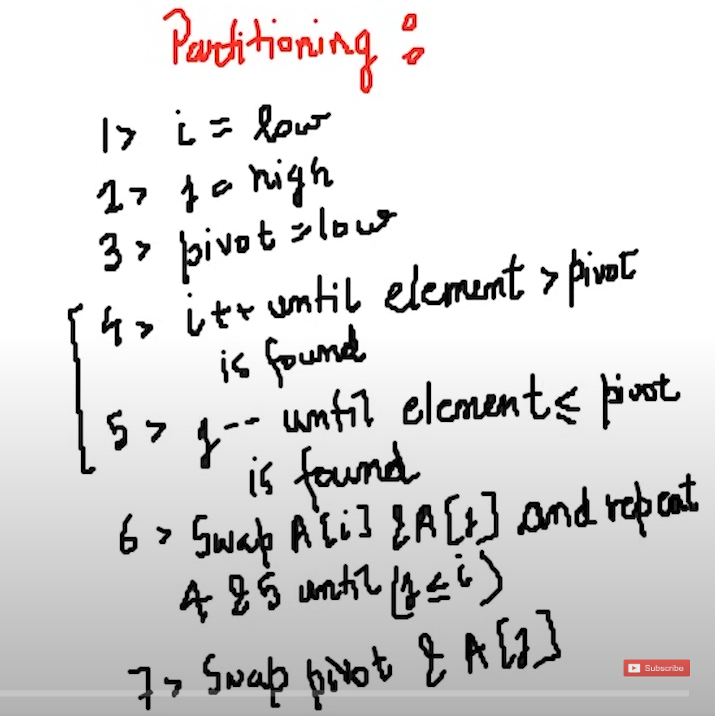 Partitioning :
1> i = low
2> j = high
3> pivot = low
4> i++ until element > pivot
is found
5> j-- until element ≤ pivot
is found
6> Swap A[i] & A[j] and repeat
4 & 5 until (j ≤ i)
7> Swap pivot & A[j]
Subscribe